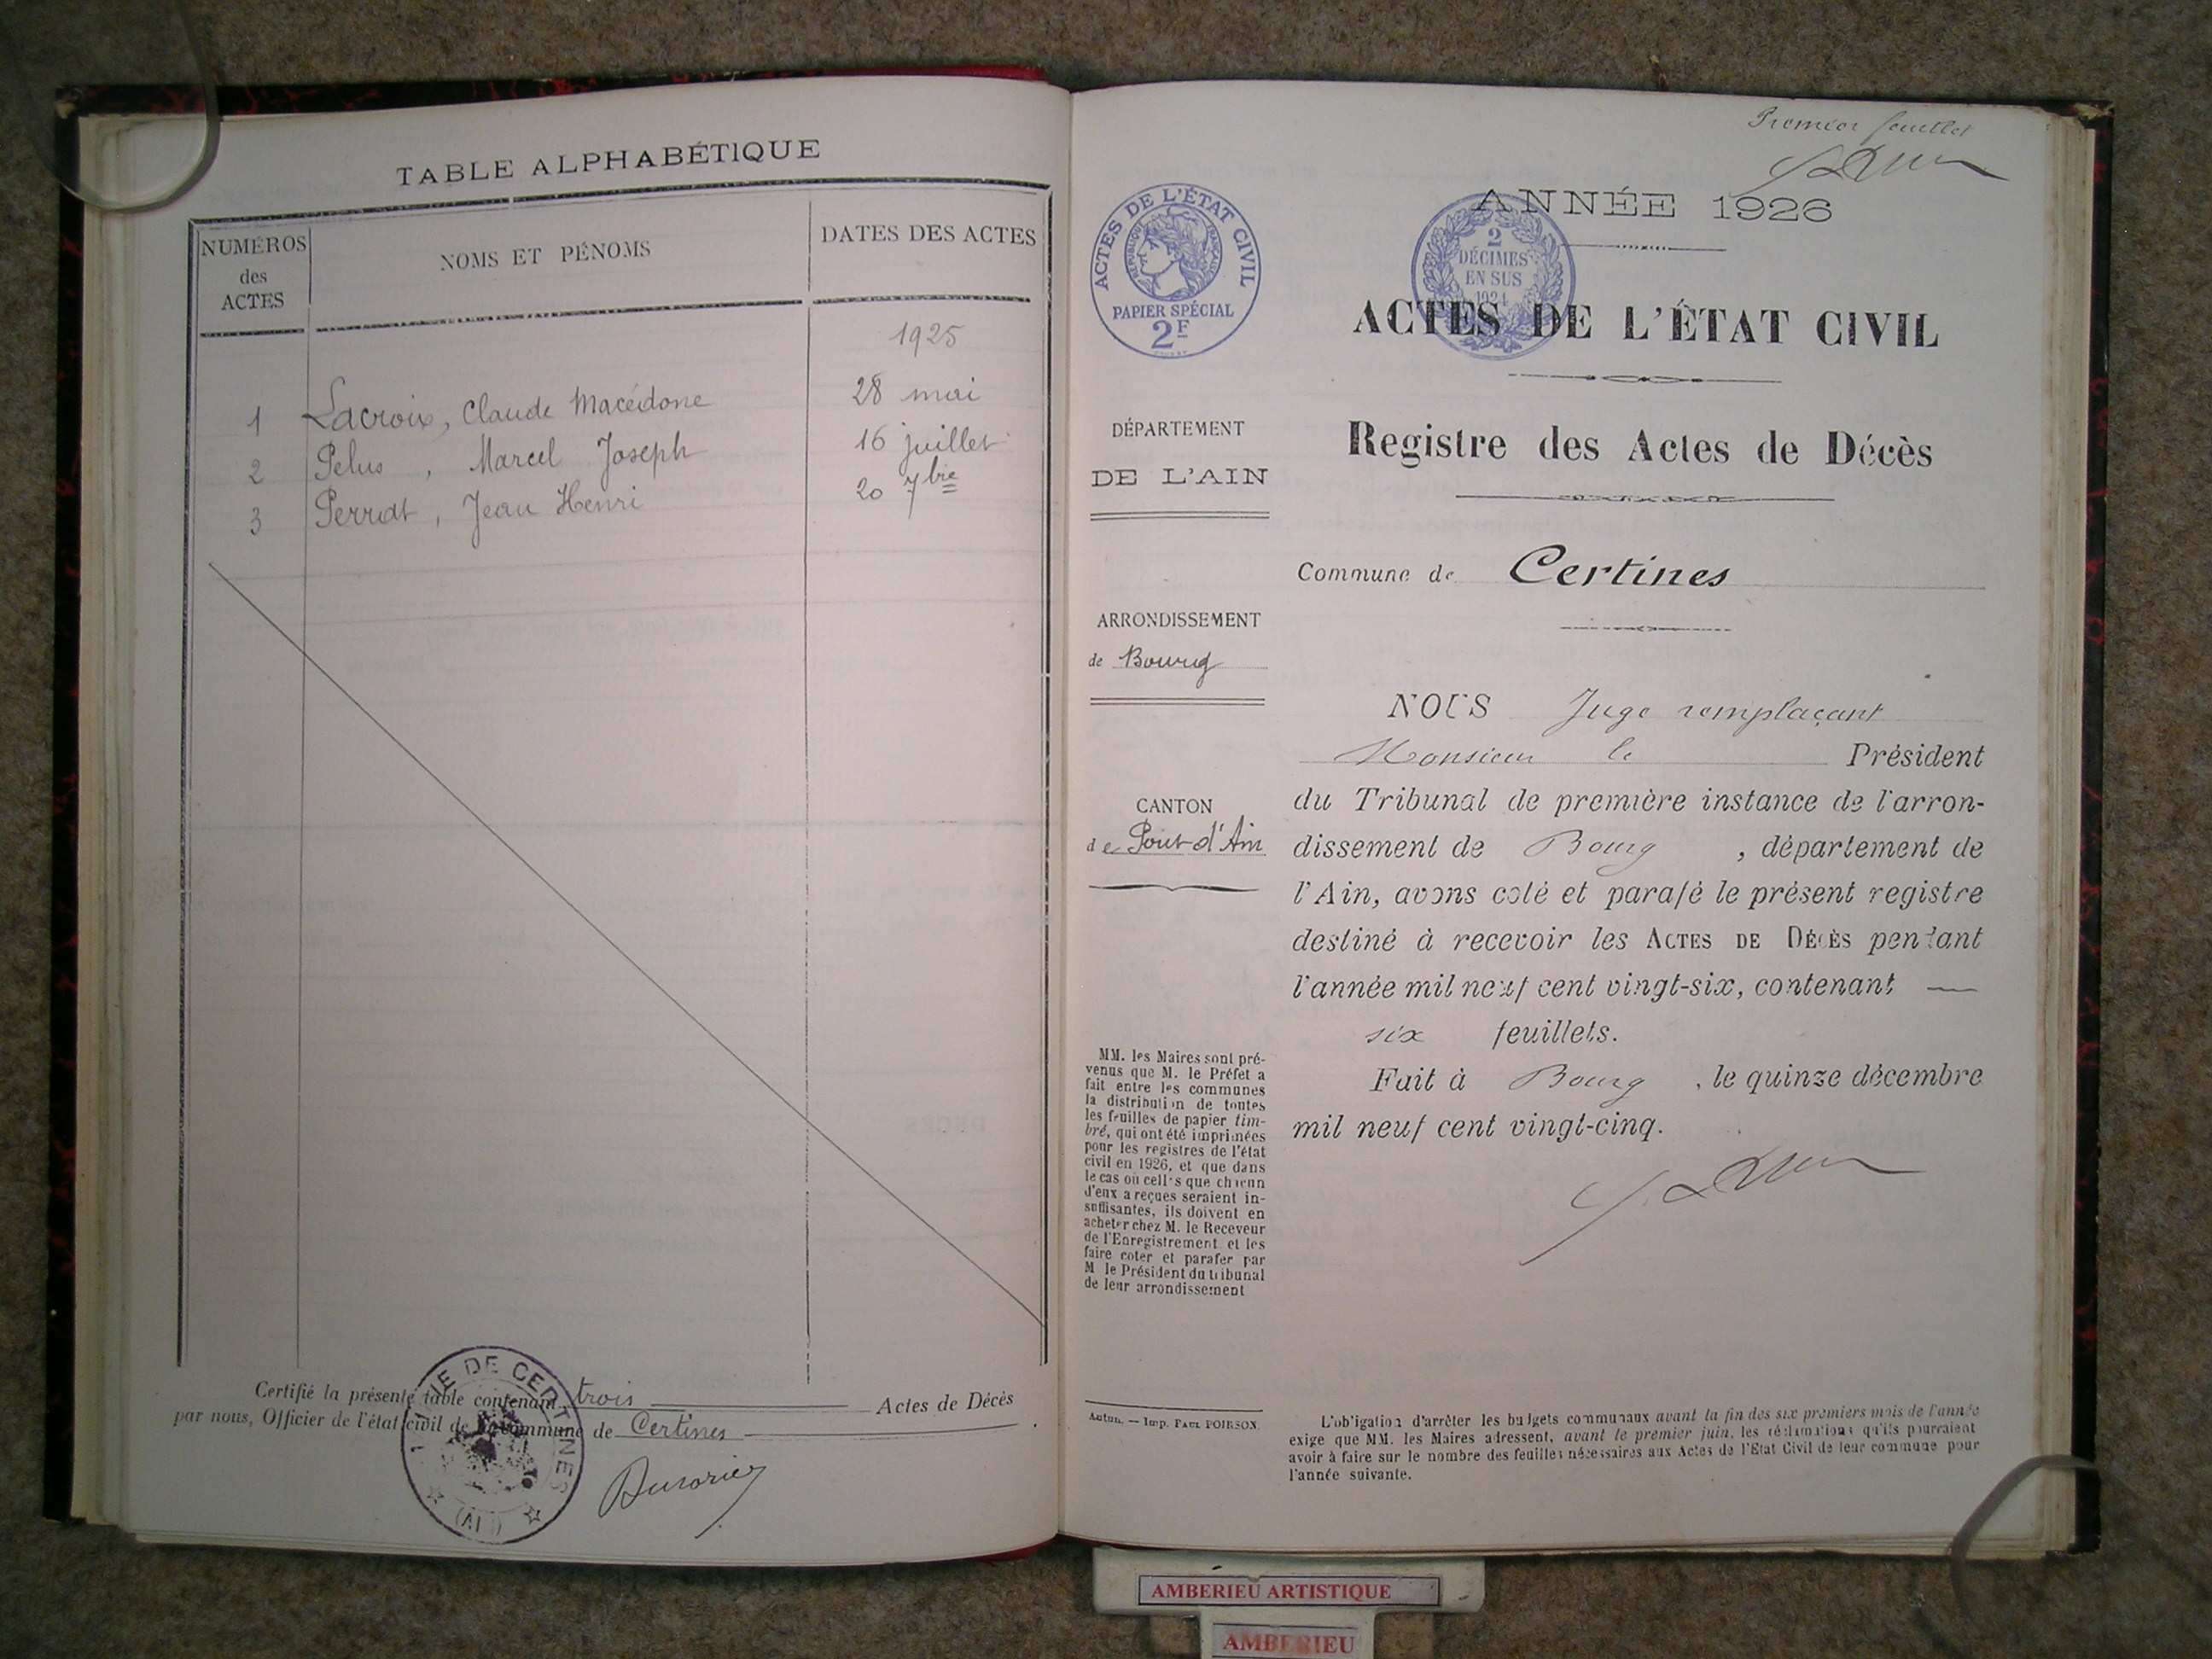 TABLE ALPHABÉTIQUE
NUMÉROS
des
ACTES
NOMS ET PÉNOMS
DATES DES ACTES
1925
1 Lacroix, Claude Macédone 28 mai
2 Pelus, Marcel Joseph 16 juillet
3 Perrat, Jean Henri 20 7bre
Certifié la présente table contenant trois Actes de Décès
par nous, Officier de l'état civil de la commune de Certines.
DE CERTINES
Premier feuillet
ANNÉE 1926
ACTES DE L'ÉTAT CIVIL
RÉPUBLIQUE FRANÇAISE
PAPIER SPÉCIAL
2F
2
DÉCIMES
EN SUS
1924
ACTES DE L'ÉTAT CIVIL
Registre des Actes de Décès
DÉPARTEMENT
DE L'AIN
Commune de Certines
ARRONDISSEMENT
de Bourg
CANTON
de Pont-d'Ain
NOUS Juge remplaçant
Monsieur le Président
du Tribunal de première instance de l'arron-
dissement de Bourg, département de
l'Ain, avons coté et parafé le présent registre
destiné à recevoir les ACTES DE DÉCÈS pendant
l'année mil neuf cent vingt-six, contenant —
six feuillets.
Fait à Bourg, le quinze décembre
mil neuf cent vingt-cinq.
MM. les Maires sont pré-
venus que M. le Préfet a
fait entre les communes
la distribution de toutes
les feuilles de papier tim-
bré, qui ont été imprimées
pour les registres de l'état
civil en 1926, et que dans
le cas où celles que chacun
d'eux a reçues seraient in-
suffisantes, ils doivent en
acheter chez M. le Receveur
de l'Enregistrement et les
faire coter et parafer par
M le Président du tribunal
de leur arrondissement
Autun. — Imp. PAUL POIRSON.
L'obligation d'arrêter les budgets communaux avant la fin des six premiers mois de l'année
exige que MM. les Maires adressent, avant le premier juin, les réclamations qu'ils pourraient
avoir à faire sur le nombre des feuilles nécessaires aux Actes de l'Etat Civil de leur commune pour
l'année suivante.
AMBERIEU ARTISTIQUE
AMBERIEU